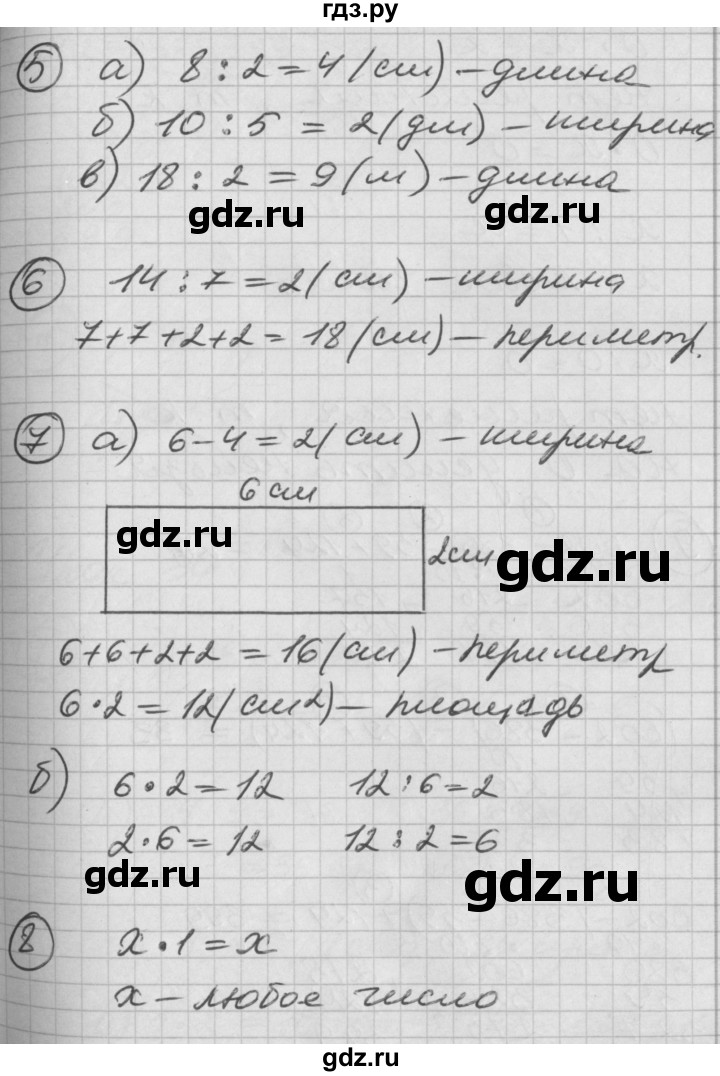 гдз.ру
5 а) 8 : 2 = 4 (см) – длина
б) 10 : 5 = 2 (дм) – ширина
в) 18 : 2 = 9 (м) – длина
gdz.ru gdz.ru
6 14 : 7 = 2 (см) – ширина
7+7+2+2 = 18 (см) – периметр.
7 а) 6 – 4 = 2 (см) – ширина
6 см
gdz.ru 2см gdz.ru
6+6+2+2 = 16 (см) – периметр
6 · 2 = 12 (см²) – площадь
б) 6 · 2 = 12 12 : 6 = 2
2 · 6 = 12 12 : 2 = 6
gdz.ru gdz.ru
8 x · 1 = x
x – любое число
gdz.ru